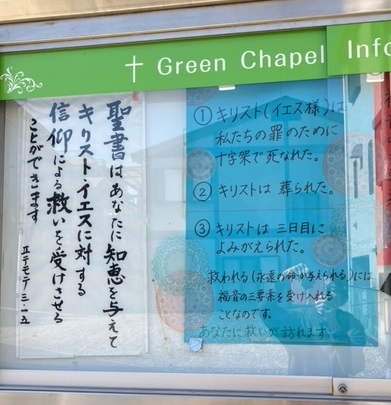 † Green Chapel Info
聖書はあなたに知恵を与えて
キリストイエスに対する
信仰による救いを受けさせる
ことができます
Ⅱテモテ三・一五
① キリスト(イエス様)は
私たちの罪のために
十字架で死なれた。
② キリストは 葬られた。
③ キリストは 三日目に
よみがえられた。
救われる(永遠の命が与えられる)には
福音の三要素を受け入れる
ことなのです。
あなたに救いが訪れます。